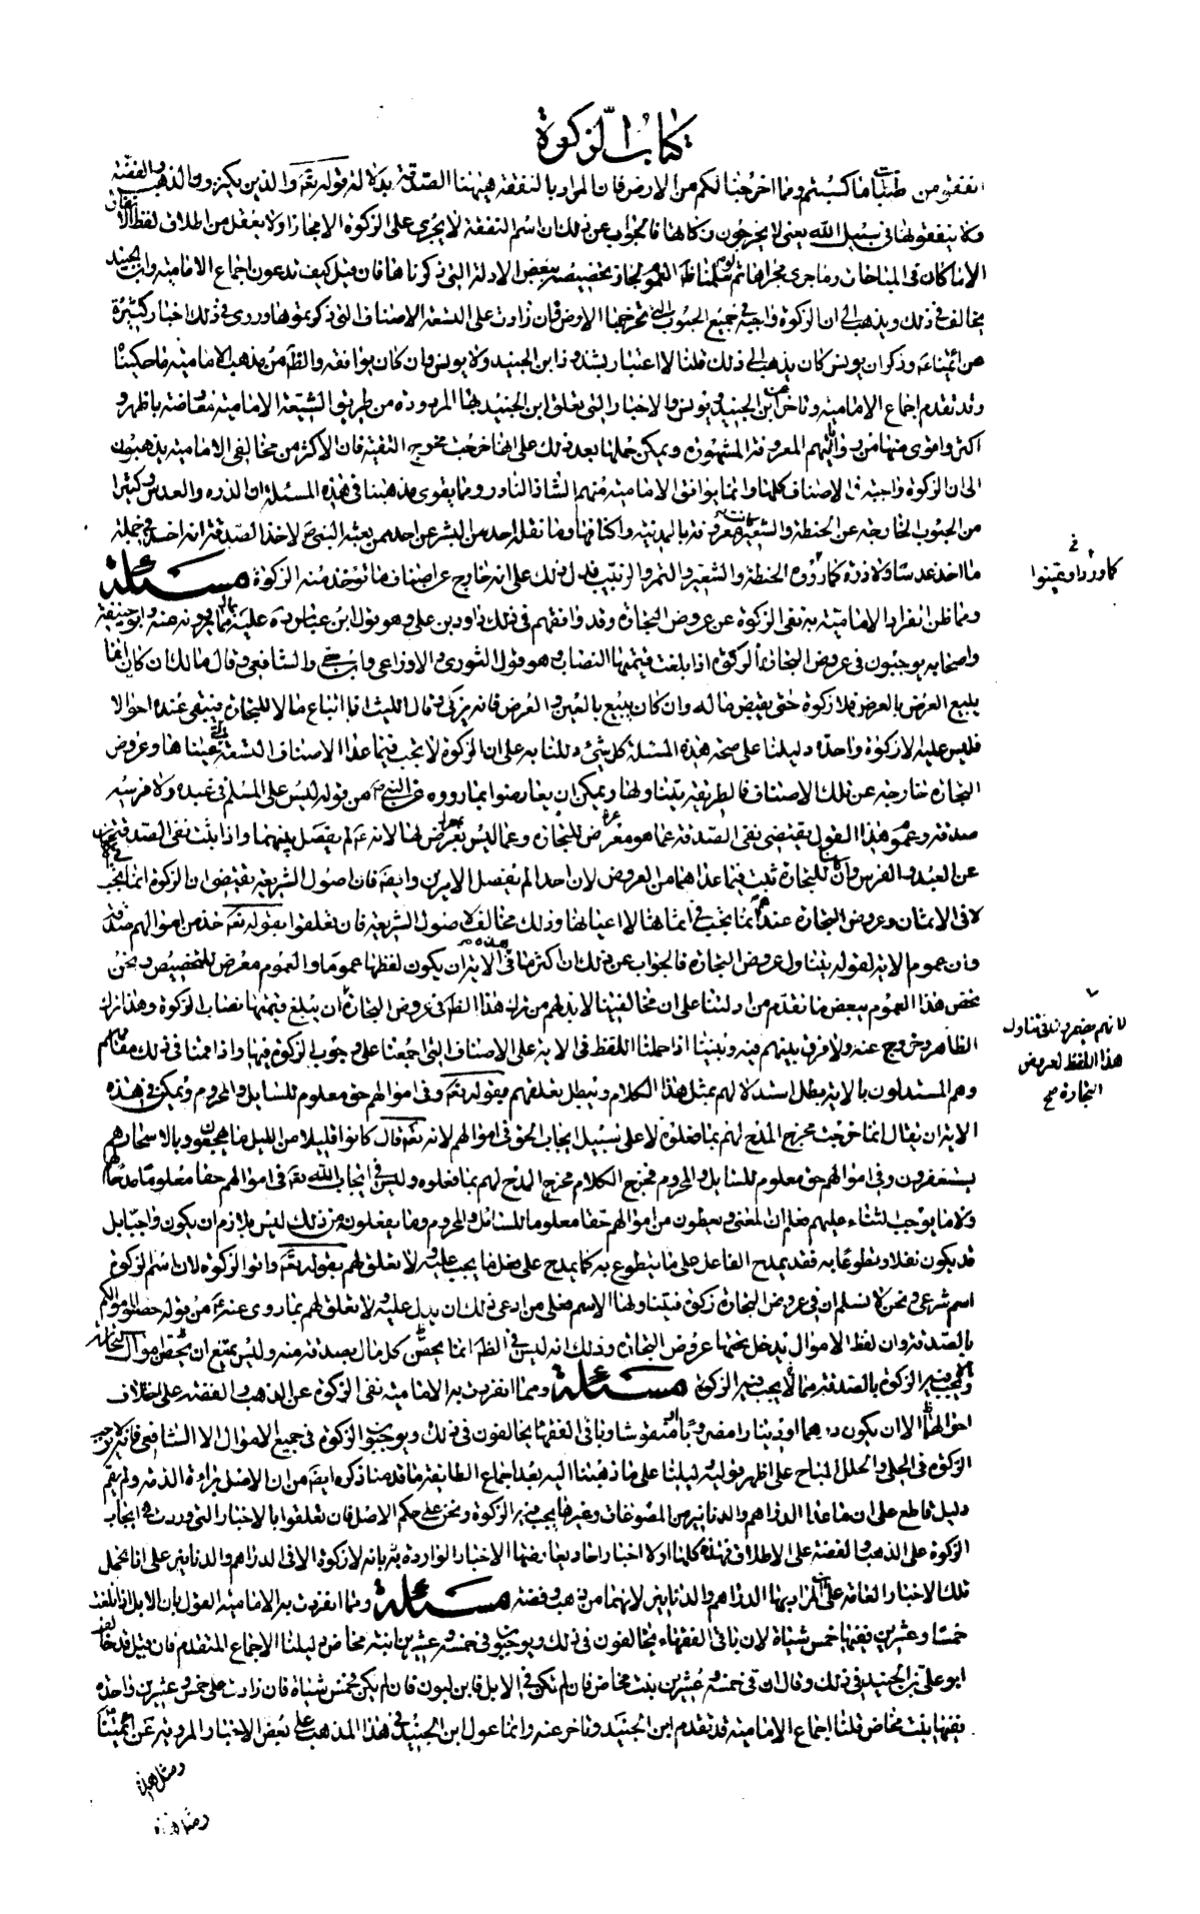 كتاب الزكوة
انفقوا من طيبات ما كسبتم ومما اخرجنا لكم من الارض فان المراد بالنفقة ههنا الصدقة بدلالة قوله تع والذين يكنزون الذهب والفضة
ولا ينفقونها فى سبيل الله يعنى لا يخرجون زكاتها فالجواب عن ذلك ان اسم النفقة لا يجرى على الزكوة الا مجازا ولا يعقل من اطلاق لفظ الانفاق
الا ما كان فى المباحات وما جرى مجراها ثم لو سلمنا ظ العموم لجاز تخصيصه ببعض الادلة التى ذكرناها فان قيل كيف تدعون اجماع الامامية وابن الجنيد
يخالف فى ذلك ويذهب الى ان الزكوة واجبة فى جميع الحبوب التى تخرجها الارض وان زادت على التسعة الاصناف التى ذكرتموها وروى فى ذلك اخبارا كثيرة
عن ائمتنا ع وذكر ان يونس كان يذهب الى ذلك قلنا لا اعتبار بشذوذ ابن الجنيد ولا يونس وان كان يوافقه والظ من مذهب الامامية ما حكيناه
وقد تقدم اجماع الامامية وتاخر عن ابن الجنيد ويونس والاخبار التى تعلق ابن الجنيد بها المروية من طريق الشيعة الامامية معارضة باظهر و
اكثر واقوى منها من رواياتهم المعروفة المشهورة ويمكن حملها بعد ذلك على انها خرجت مخرج التقية فان الاكثر من مخالفى الامامية يذهبون
الى ان الزكوة واجبة فى الاصناف كلها وانما يوافق الامامية منهم الشاذ النادر ومما يقوى مذهبنا فى هذه المسئلة ان الذره والعدس وكثيرا
من الحبوب الخارجة عن الحنطة والشعير كانت معروفة بالمدينة واكنافها وما نقل احد من البشر عن احد ممن بعثه النبى ص لاخذ الصدقة انه اخذ فى جملة
ما اخذ عدسا ولا ذرة كما رووه الحنطة والشعير والتمر والزبيب فدل ذلك على انه خارج عن اصناف ما يؤخذ منه الزكوة مسئلة
ومما ظن انفراد الامامية به نفى الزكوة عن عروض التجارة وقد وافقهم فى ذلك داود بن على وهو قول ابن عباس ره عليه فيما يروونه عنه وابو حنيفة
واصحابه يوجبون فى عروض التجارة الزكوة اذا بلغت قيمتها النصاب وهو قول الثورى والاوزاعى وابن حى والشافعى وقال مالك ان كان انما
يبيع العرض بالعرض فلا زكوة حتى يقبض ماله وان كان يبيع بالعين والعرض فانه يزكى وقال الليث اذا ابتاع مالا للتجارة فبقى عنده احوالا
فليس عليه الا زكوة واحدة دليلنا على صحة هذه المسئلة كل شىء دللنا به على ان الزكوة لا تجب فيما عدا الاصناف التسعة التى عيناها وعروض
التجارة خارجة عن تلك الاصناف فالطريقة تتناولها ويمكن ان يعارضوا بما رووه عن النبى ص من قوله ليس على المسلم فى عبده ولا فرسه
صدقة وعموم هذا القول يقتضى نفى الصدقة عما هو معرض للتجارة وعما ليس بمعرض لها لانه ع لم يفصل بينهما واذا ثبت نفى الصدقة
عن العبد والفرس وان كانا للتجارة ثبت فيما عداهما من العروض لان احدا لم يفصل الامرين وايضا فان اصول الشريعة تقتضى ان الزكوة انما تجب فى الاعيان
لا فى الاثمان وعروض التجارة عندهم انما تجب فى اثمانها لا اعيانها وذلك مخالف لاصول الشريعة فان تعلقوا بقوله تع خذ من اموالهم صدقة
وان عموم الاية لقوله يتناول عروض التجارة فالجواب عن ذلك ان اكثر ما فى هذه الاية ان يكون لفظها عموما والعموم معرض للتخصيص ونحن
نخص هذا العموم ببعض ما تقدم من ادلتنا على ان مخالفينا لا بد لهم من ترك هذا الظ فى عروض التجارة ان يبلغ قيمتها نصاب الزكوة وهذا ترك
الظاهر وخروج عنه ولا فرق بينهم فيه وبيننا اذا حملنا اللفظ فى الاية على الاصناف التى اجمعنا على وجوب الزكوة فيها واذا قمنا فى ذلك مقامهم
وهم المستدلون بالاية بطل استدلالهم بمثل هذا الكلام ويبطل تعلقهم بقوله تع وفى اموالهم حق معلوم للسايل والمحروم ويمكن فى هذه
الاية ان يقال انما خرجت مخرج المدح لهم بما فعلوه لا على سبيل ايجاب الحق فى اموالهم لانه تع قال كانوا قليلا من الليل ما يهجعون وبالاسحار هم
يستغفرون وفى اموالهم حق معلوم للسايل والمحروم فخرج الكلام مخرج المدح لهم بما فعلوه وليس فى ايجاب الله تع فى اموالهم حقا معلوما مدحا لهم
ولا ما يوجب لثناء عليهم فعلم ان المعنى ويعطون من اموالهم حقا معلوما للسائل والمحروم وما يفعلون من ذلك ليس بلازم ان يكون واجبا بل
قد يكون نفلا وتطوعا به فقد يمدح الفاعل على ما يتطوع به كما يمدح على فعل ما يجب عليه ولا تعلق لهم بقوله تع واتوا الزكوة لان اسم الزكوة
اسم شرعى ونحن لا نسلم ان فى عروض التجارة زكوة فيتناولها الاسم فعلى من ادعى ذلك ان يدل عليه ولا تعلق لهم بما روى عنه ع من قوله حصنوا اموالكم
بالصدقة وان لفظ الاموال يدخل تحتها عروض التجارة وذلك انه ليس فى الظ انما يحصن كل مال بصدقة منه وليس يمتنع ان يحصن اموال التجارة
وما لا تجب فيه الزكوة بالصدقة مما تجب فيه الزكوة مسئلة ومما انفردت به الامامية نفى الزكوة عن الذهب والفضة على اختلاف
احوالهما الا ان يكون درهما او دينارا مضروبا منقوشا وباقى الفقهاء يخالفون فى ذلك ويوجبون الزكوة فى جميع الاموال الا الشافعى فانه لا يوجب
الزكوة فى الحلى والحلل المباح على اظهر قوليه دليلنا على ما ذهبنا اليه بعد اجماع الطايفة ما قدمنا ذكره ايضا من ان الاصل براءة الذمة ولم يقم
دليل قاطع على ان ما عدا الدراهم والدنانير من المصوغات وغيرها يجب فيه الزكوة ونحن على حكم الاصل فان تعلقوا بالاخبار التى وردت فى ايجاب
الزكوة على الذهب والفضة على الاطلاق فهذه كلها اولا اخبار احاد يعارضها الاخبار الواردة بانه لا زكوة الا فى الدراهم والدنانير على انا نحمل
تلك الاخبار العامة على ان المراد بها الدراهم والدنانير لانهما من ذهب وفضة مسئلة ومما انفردت به الامامية القول بان الابل اذا بلغت
خمسا وعشرين ففيها خمس شياة لان باقى الفقهاء يخالفون فى ذلك ويوجبون فى خمسة وعشرين ابنة مخاض دليلنا الاجماع المتقدم فان قيل قد خالف
ابو على بن الجنيد فى ذلك وقال ان فى خمسة وعشرين بنت مخاض فان لم تكن فى الابل فابن لبون فان لم يكن فخمس شياة فان زادت على خمس وعشرين واحدة
ففيها بنت مخاض قلنا اجماع الامامية قد تقدم ابن الجنيد وتاخر عنه وانما عول ابن الجنيد فى هذا المذهب على بعض الاخبار المروية عن ائمتنا
ومثل هذه
لانهم يضمرون فى تناول
هذا اللفظ لعروض
التجارة صح